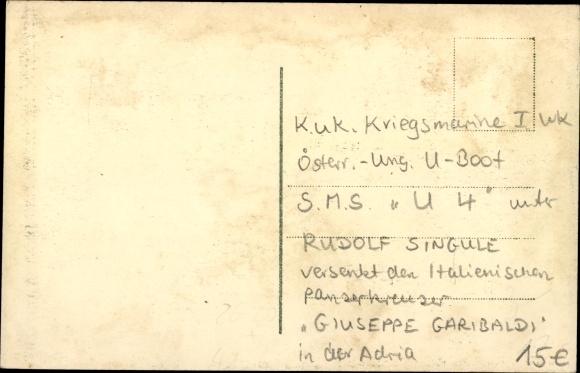 K.u.K. Kriegsmarine I. WK
Österr.-Ung. U-Boot
S.M.S. „U 4" unter
RUDOLF SINGULE
versenkt den Italienischen
Panzerkreuzer
„GIUSEPPE GARIBALDI"
in der Adria
15€